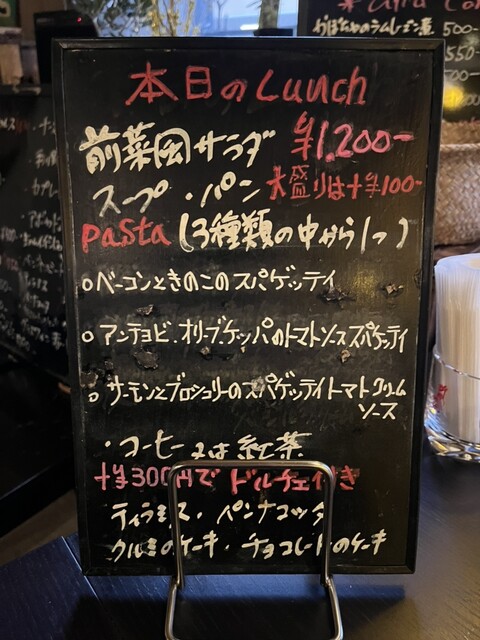 本日のLunch
前菜風サラダ ¥1.200-
スープ・パン 大盛りは+¥100-
pasta (3種類の中から1つ)
○ベーコンときのこのスパゲッティ
○アンチョビ、オリーブ、ケッパのトマトソーススパゲッティ
○サーモンとブロッコリーのスパゲッティトマトクリーム
ソース
・コーヒー又は紅茶
+¥300円でドルチェ付き
ティラミス・パンナコッタ
クルミのケーキ・チョコレートのケーキ
かぼちゃのラムレーズン煮 500-
550-